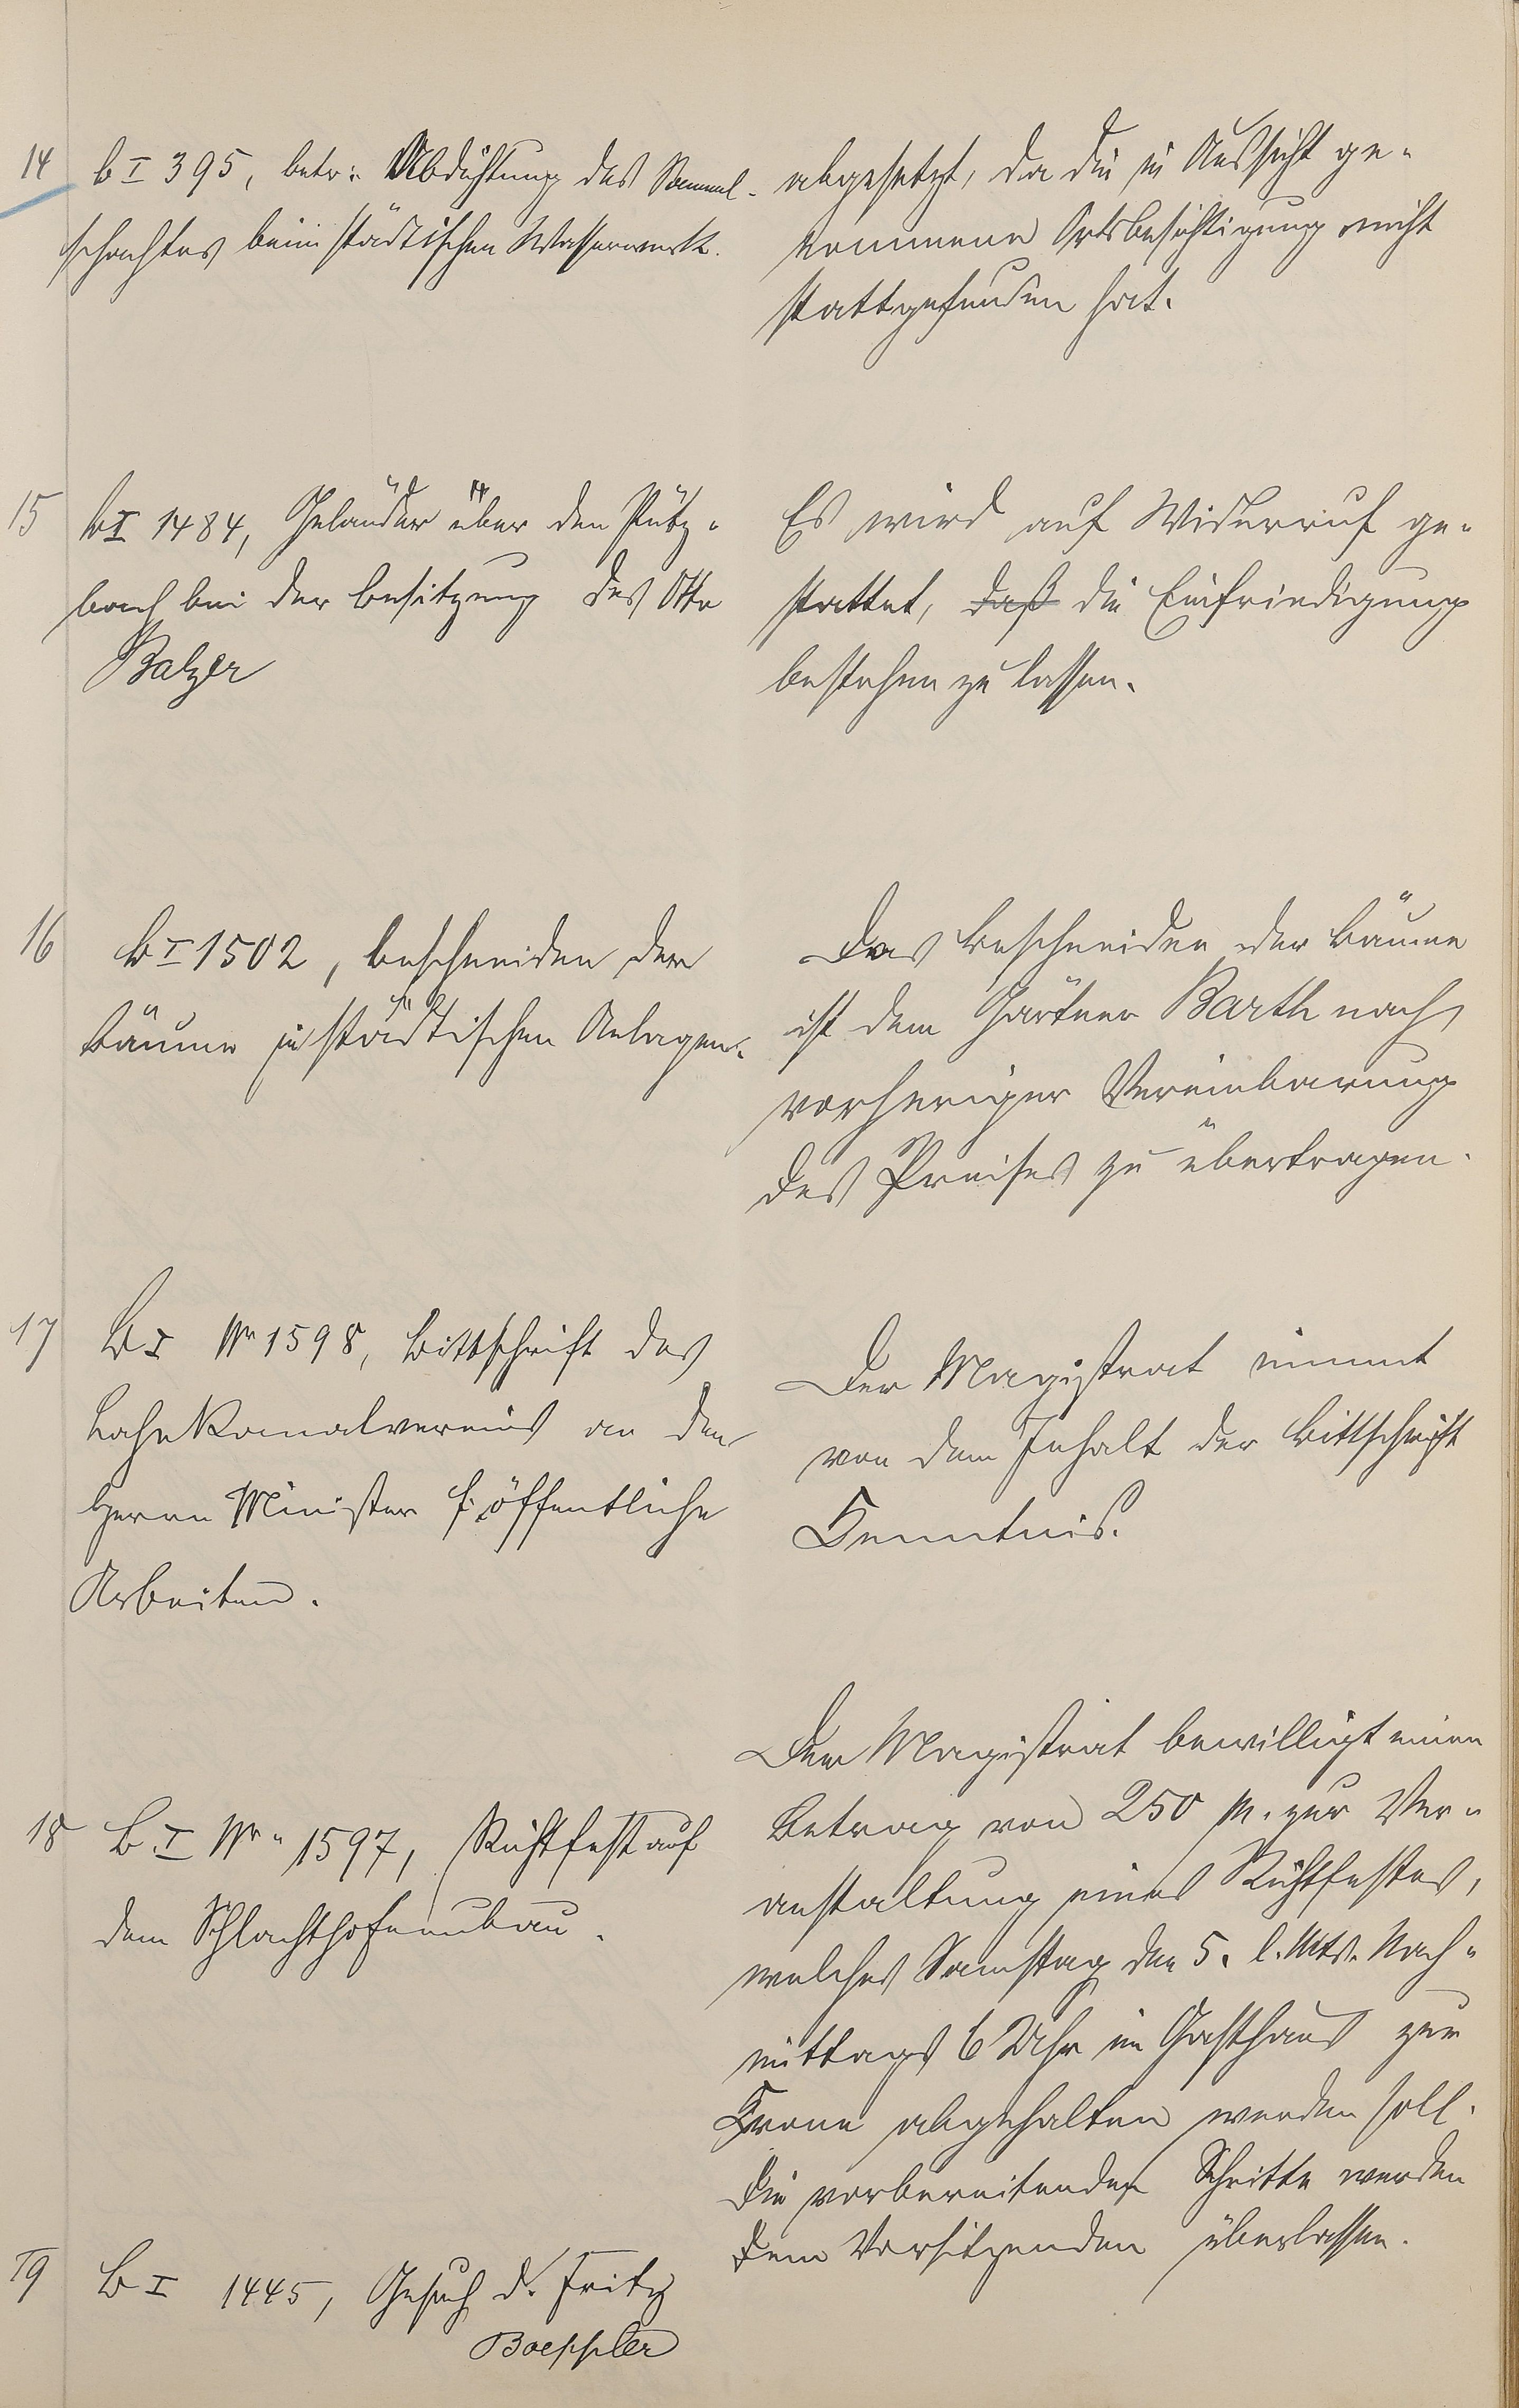 14
b I 395, betr: Abdichtung des Sammel-
schachtes beim städtischen Wasserwerk.
abgesetzt, da die in Aussicht ge-
nommene Ortsbesichtigung nicht
stattgefunden hat.
15
b I 1484, Geländer über den Pütz-
bach bei der Besitzung des Otto
Balzer
Es wird auf Widerruf ge-
stattet, daß die Einfriedigung
bestehen zu lassen.
16
B I 1502, Beschneiden der
Bäume in städtischen Anlagen.
Das Beschneiden der Bäume
ist dem Gärtner Barth nach
vorheriger Vereinbarung
des Preises zu übertragen.
17
B I Nr 1598, Bittschrift des
Lahnkanalvereins an den
Herrn Minister f. öffentliche
Arbeiten.
Der Magistrat nimmt
von dem Inhalt der Bittschrift
Kenntnis.
18
B I Nr. 1597, Richtfest auf
dem Schlachthofneubau.
Der Magistrat bewilligt einen
Betrag von 250 M. zur Ver-
anstaltung eines Richtfestes,
welches Samstag den 5. l. Mts. Nach-
mittags 6 Uhr im Gasthaus zur
Krone abgehalten werden soll.
Die vorbereitenden Schritte werden
dem Vorsitzenden überlassen.
19
B I 1445, Gesuch d. Fritz
Boeppler